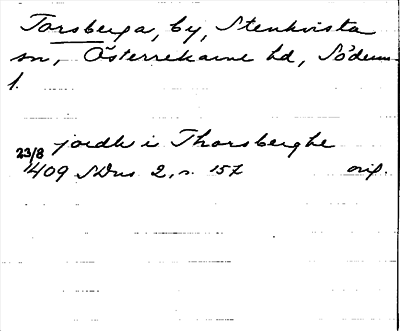 Torsberga, by, Stenkvista
sn, Österrekarne hd, Söderm.
l.
jordh i Thorsberghe
23/8
1409 SDns 2, s. 157 orig.